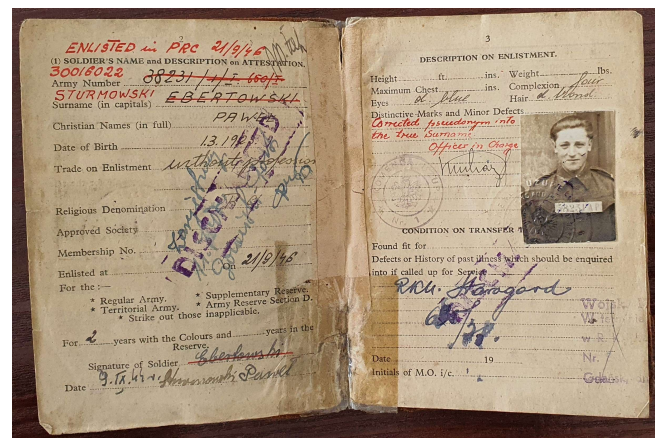 ENLISTED in PRC 21/9/46
3
(1) SOLDIER'S NAME and DESCRIPTION on ATTESTATION.
30016022
Army Number 38231
STURMOWSKI
Surname (in capitals) EBERTOWSKI
Christian Names (in full) PAWEŁ
Date of Birth 1.3.19
Trade on Enlistment without profession
Religious Denomination
Approved Society
Membership No.
Enlisted at On 21/9/46
For the :—
* Regular Army. * Supplementary Reserve.
* Territorial Army. * Army Reserve Section D.
* Strike out those inapplicable.
For 2 years with the Colours and years in the
Reserve.
Signature of Soldier Ebertowski
Date Paweł
DISCHARGED
3
DESCRIPTION ON ENLISTMENT.
Height ft. ins. Weight lbs.
Maximum Chest ins. Complexion four
Eyes d. blue Hair d. blond
Distinctive Marks and Minor Defects
Corrected pseudonym into
the true Surname.
Officer in Charge
CONDITION ON TRANSFER T
Found fit for
Defects or History of past illness which should be enquired
into if called up for Service
R.K.U. Starogard
Date 19
Initials of M.O. i/c.
Wojsk
w
Nr.